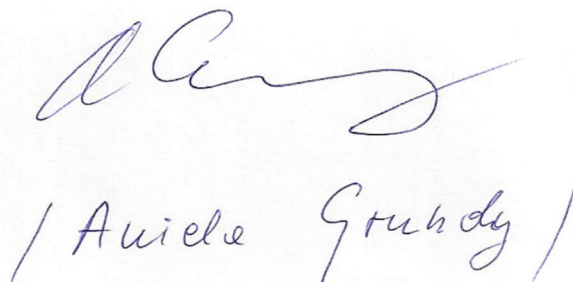 / Aniela Grundy /